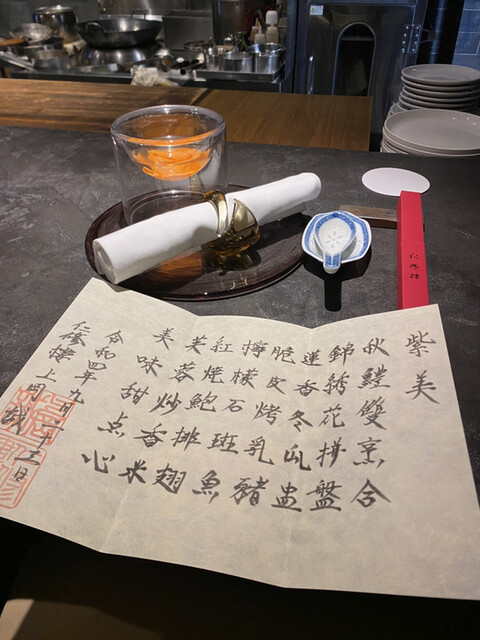 紫美
秋鱧雙烹合
錦綉花拼盤
蓮香冬瓜盅
脆皮烤乳豬
檸檬石斑魚
紅燒鮑排翅
芙蓉炒香米
美味甜点心
令和四年九月二十三日
仁修樓 上岡誠
仁修樓